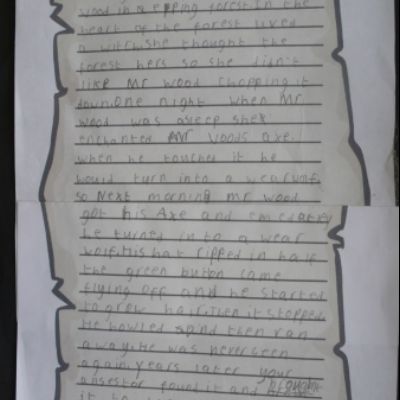 wood in epping forest. In the
heart of the forest lived
a witch. she thought the
forest hers so she didn't
like Mr Wood chopping it
down. One night when Mr
Wood was asleep she
enchanted Mr Woods axe.
when he touched it he
would turn into a wearwolf.
so Next morning mr wood
got his Axe and emedatly
he turned into a wear
wolf. His hat ripped in half
the green button came
flying off and he started
to grow hair. Then it stopped.
He howled and then ran
away. He was never seen
again. years later your
ansestor found it and brought
it to